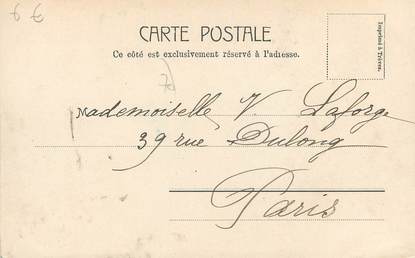 6 6
CARTE POSTALE
Ce côté est exclusivement réservé à l'adresse.
Imprimé à Trèves.
Mademoiselle V. Laforge
39 rue Dulong
Paris